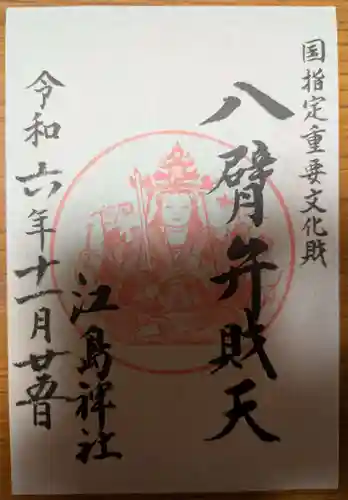 国指定重要文化財
八臂弁財天
江島神社
令和六年十一月廿五日